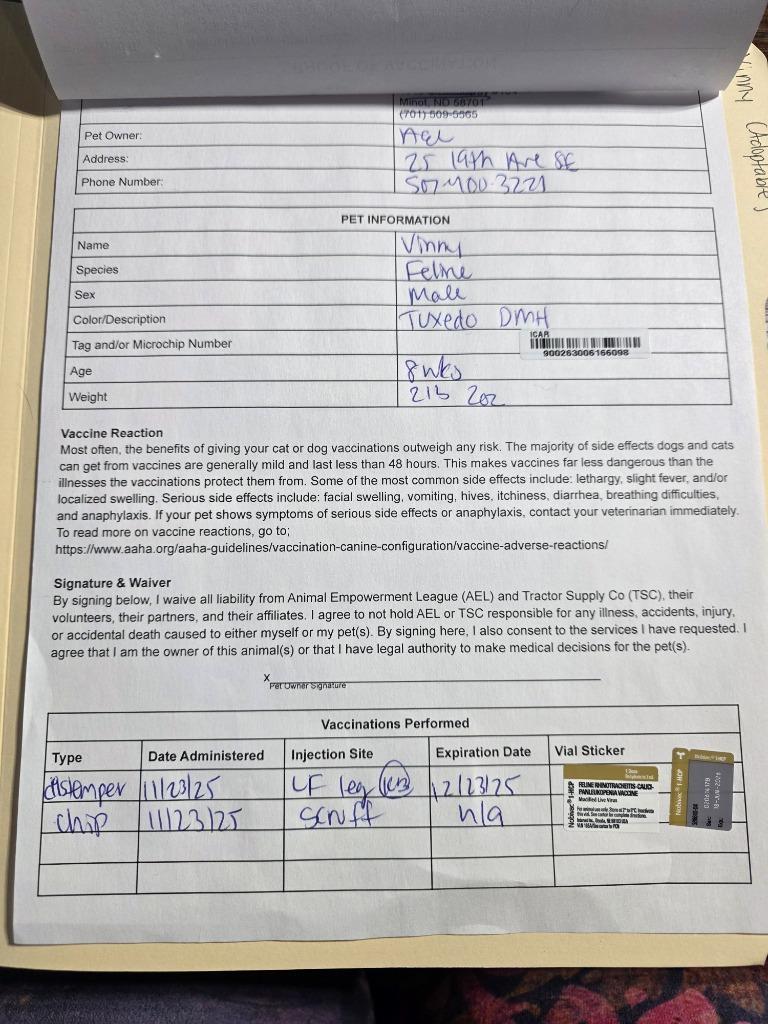 Minot, ND 58701
(701) 509-5565
Pet Owner: AEL
Address: 25 19th Ave SE
Phone Number: 507-400-3221
PET INFORMATION
Name Vinny
Species Feline
Sex Male
Color/Description Tuxedo DMH
Tag and/or Microchip Number ICAR
900263006166098
Age 8wks
Weight 2lb 2oz
Vaccine Reaction
Most often, the benefits of giving your cat or dog vaccinations outweigh any risk. The majority of side effects dogs and cats
can get from vaccines are generally mild and last less than 48 hours. This makes vaccines far less dangerous than the
illnesses the vaccinations protect them from. Some of the most common side effects include: lethargy, slight fever, and/or
localized swelling. Serious side effects include: facial swelling, vomiting, hives, itchiness, diarrhea, breathing difficulties,
and anaphylaxis. If your pet shows symptoms of serious side effects or anaphylaxis, contact your veterinarian immediately.
To read more on vaccine reactions, go to;
https://www.aaha.org/aaha-guidelines/vaccination-canine-configuration/vaccine-adverse-reactions/
Signature & Waiver
By signing below, I waive all liability from Animal Empowerment League (AEL) and Tractor Supply Co (TSC), their
volunteers, their partners, and their affiliates. I agree to not hold AEL or TSC responsible for any illness, accidents, injury,
or accidental death caused to either myself or my pet(s). By signing here, I also consent to the services I have requested. I
agree that I am the owner of this animal(s) or that I have legal authority to make medical decisions for the pet(s).
X
Pet Owner Signature
Vaccinations Performed
Type Date Administered Injection Site Expiration Date Vial Sticker
distemper 11/23/25 LF leg 12/23/25
chip 11/23/25 scruff n/a
Nobivac® 1-HCP
FELINE RHINOTRACHEITIS-CALICI-
PANLEUKOPENIA VACCINE
Modified Live Virus
Nobivac® 1-HCP
Vinny (Adoptable)